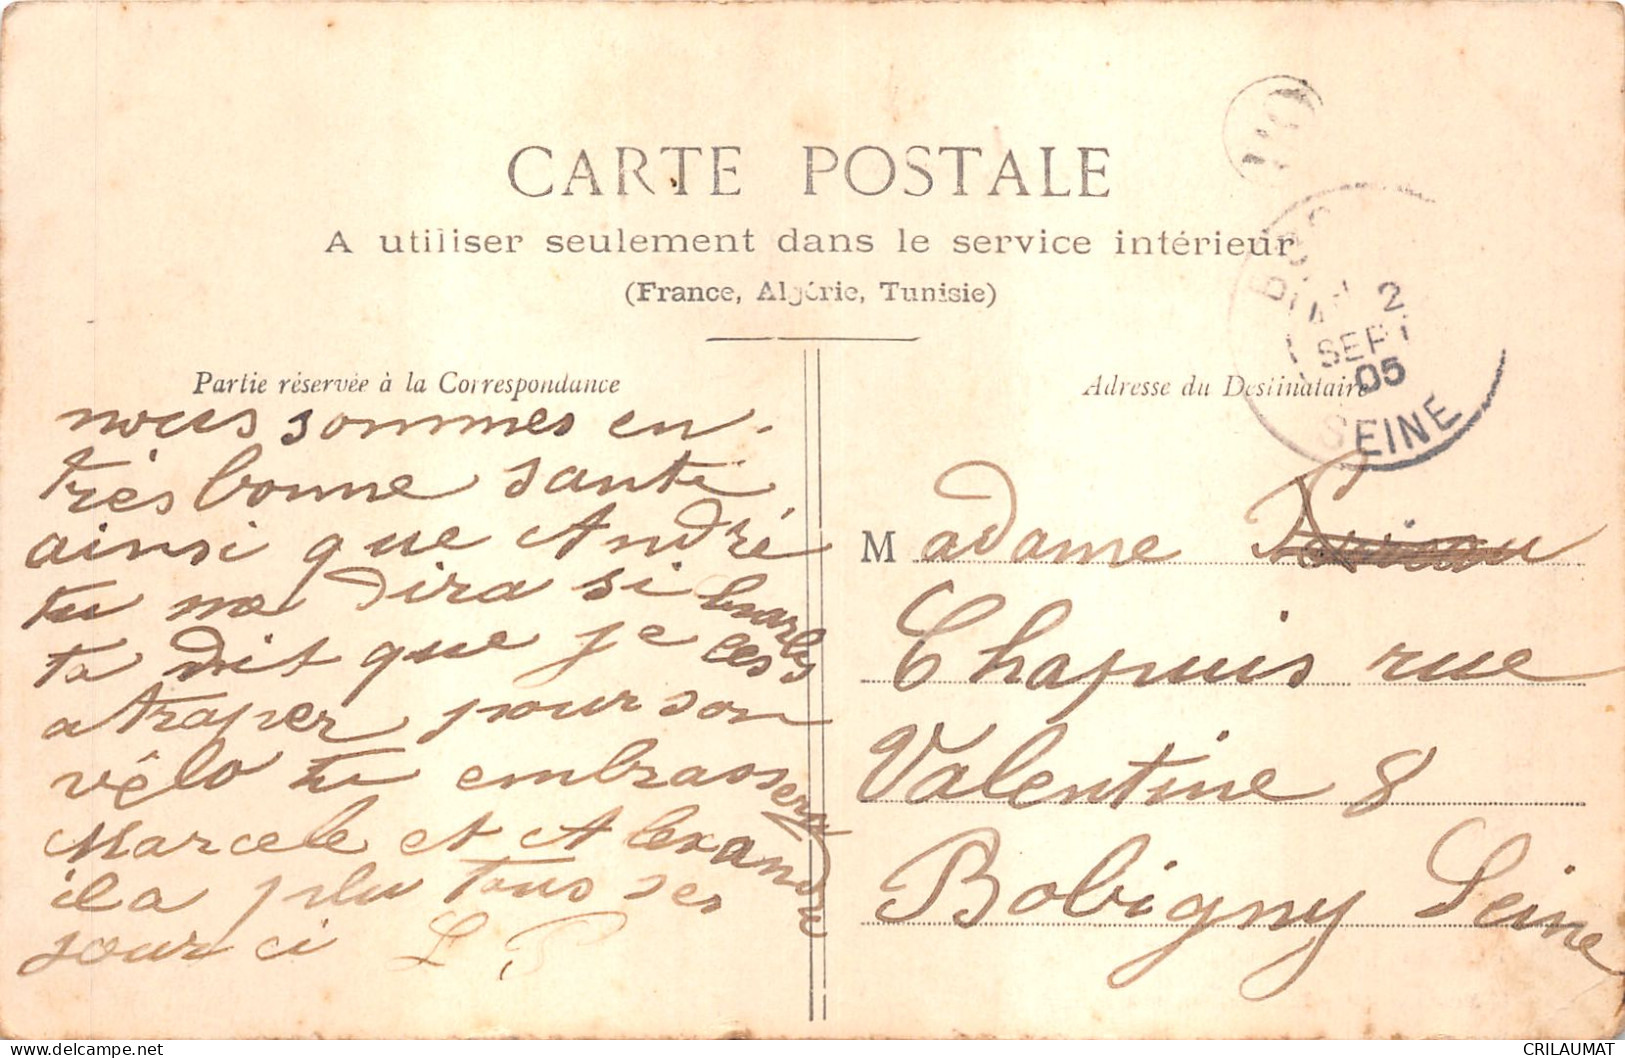 CARTE POSTALE
A utiliser seulement dans le service intérieur
(France, Algérie, Tunisie)
Partie réservée à la Correspondance
nous sommes en
très bonne santé
ainsi que André
tu me dira si
ta dit que je les
atraper pour son
vélo tu embrassera
Marcele et Alexandre
il a plu tous ses
jour ci L P
2
SEPT
05
SEINE
Adresse du Destinataire
Madame
Chapuis rue
Valentine 8
Bobigny Seine
CRILAUMAT